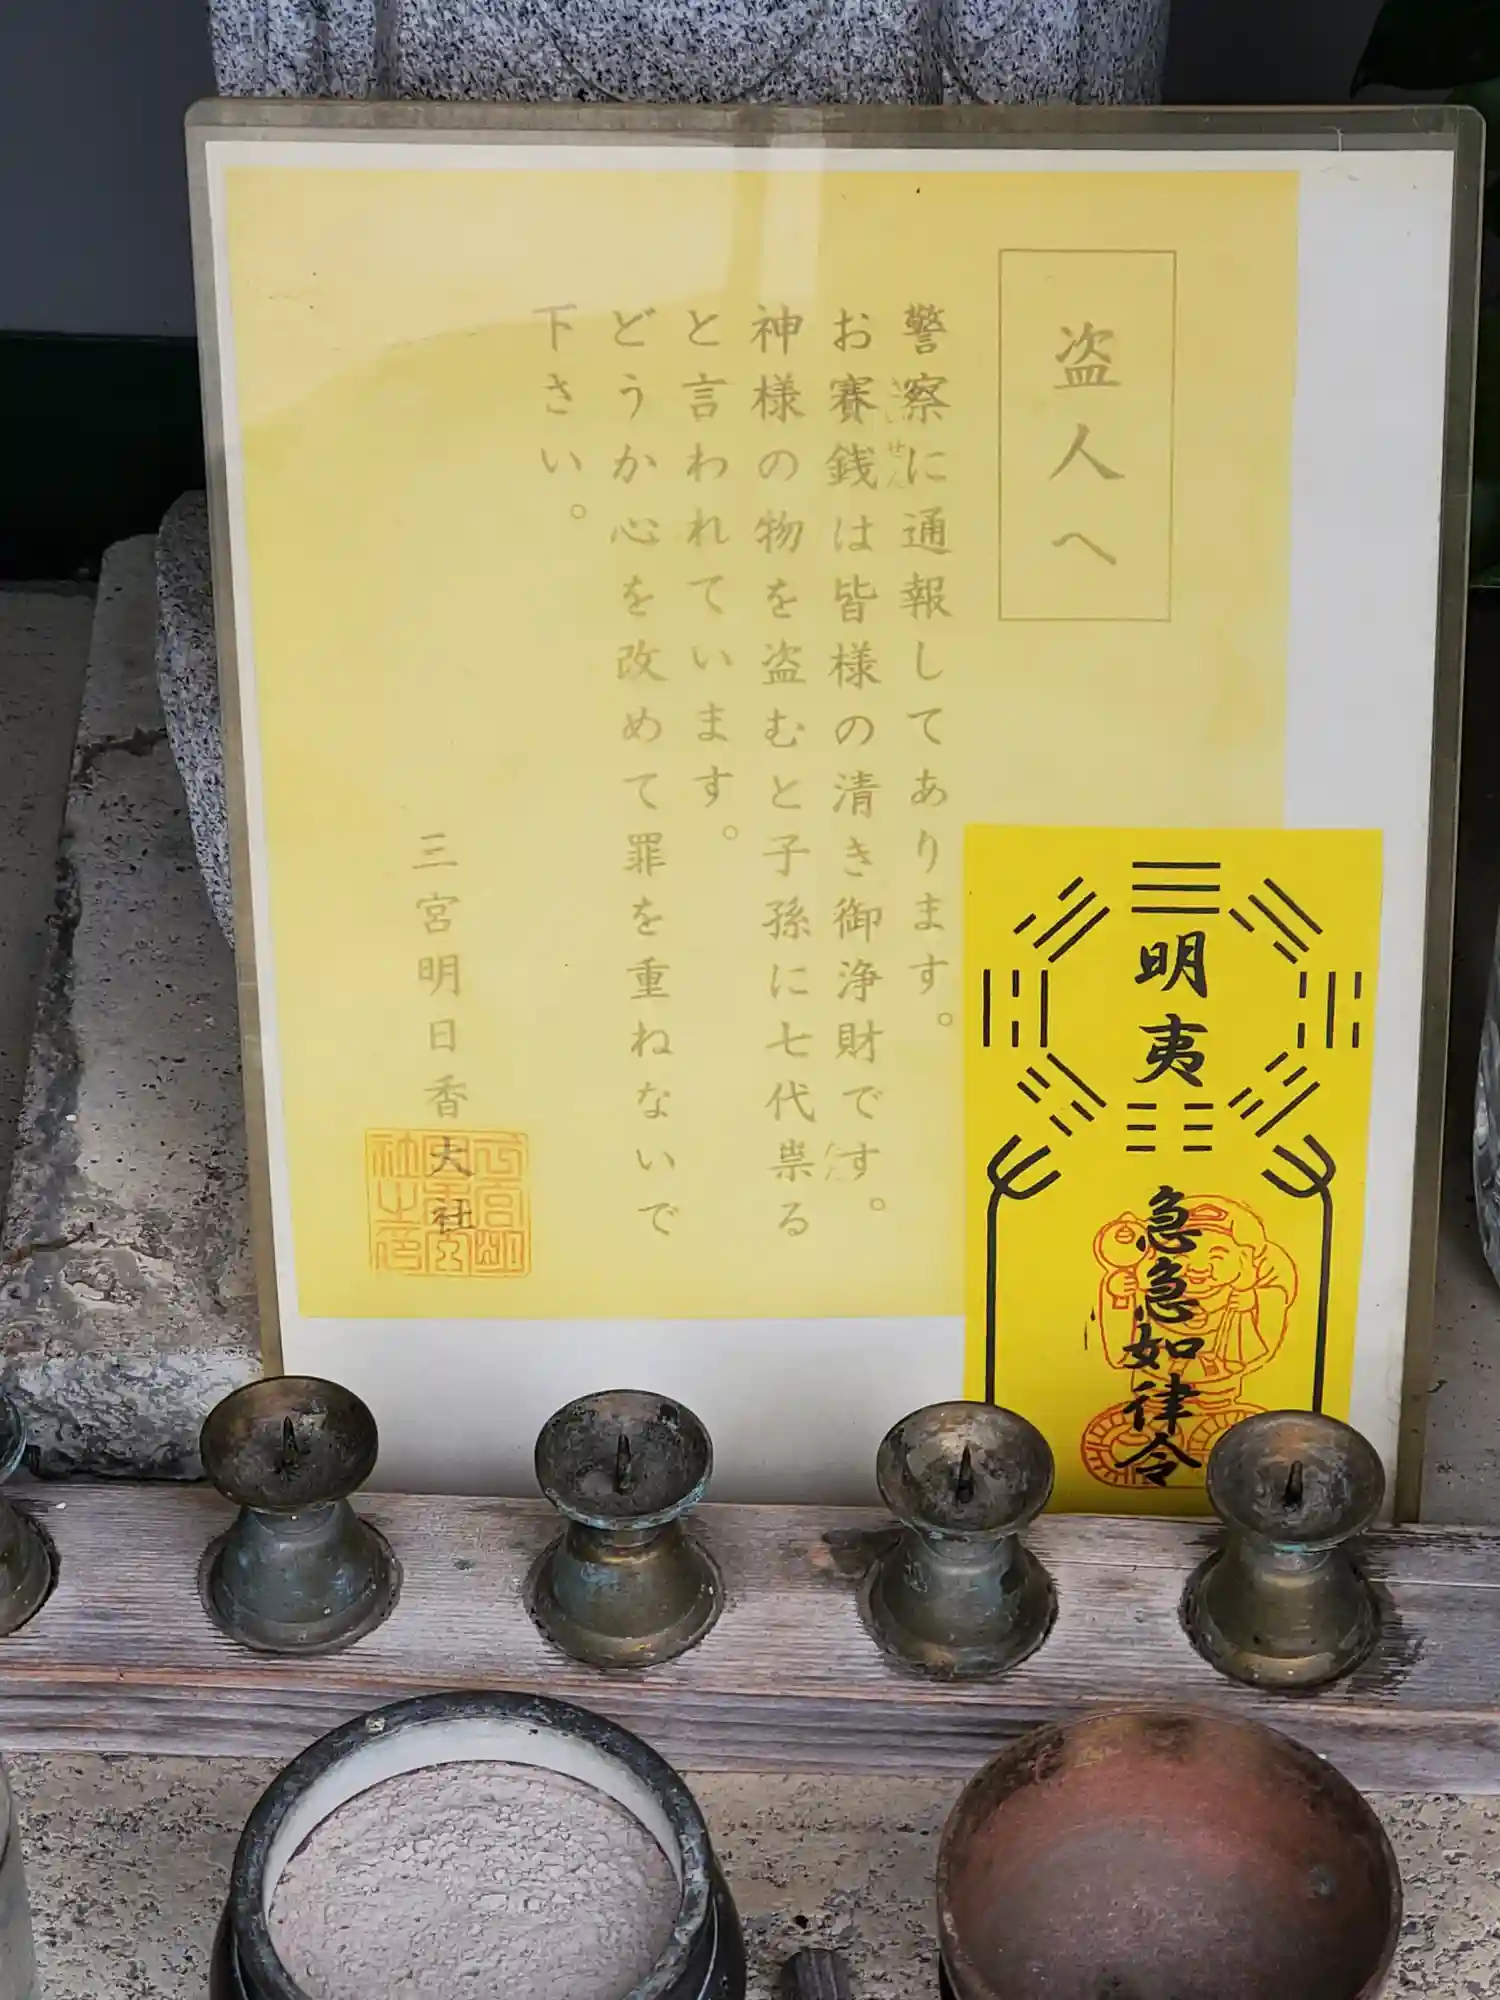 盗人へ
警察に通報してあります。
お賽銭は皆様の清き御浄財です。
神様の物を盗むと子孫に七代祟る
と言われています。
どうか心を改めて罪を重ねないで
下さい。
三宮明日香大社
明夷
急急如律令